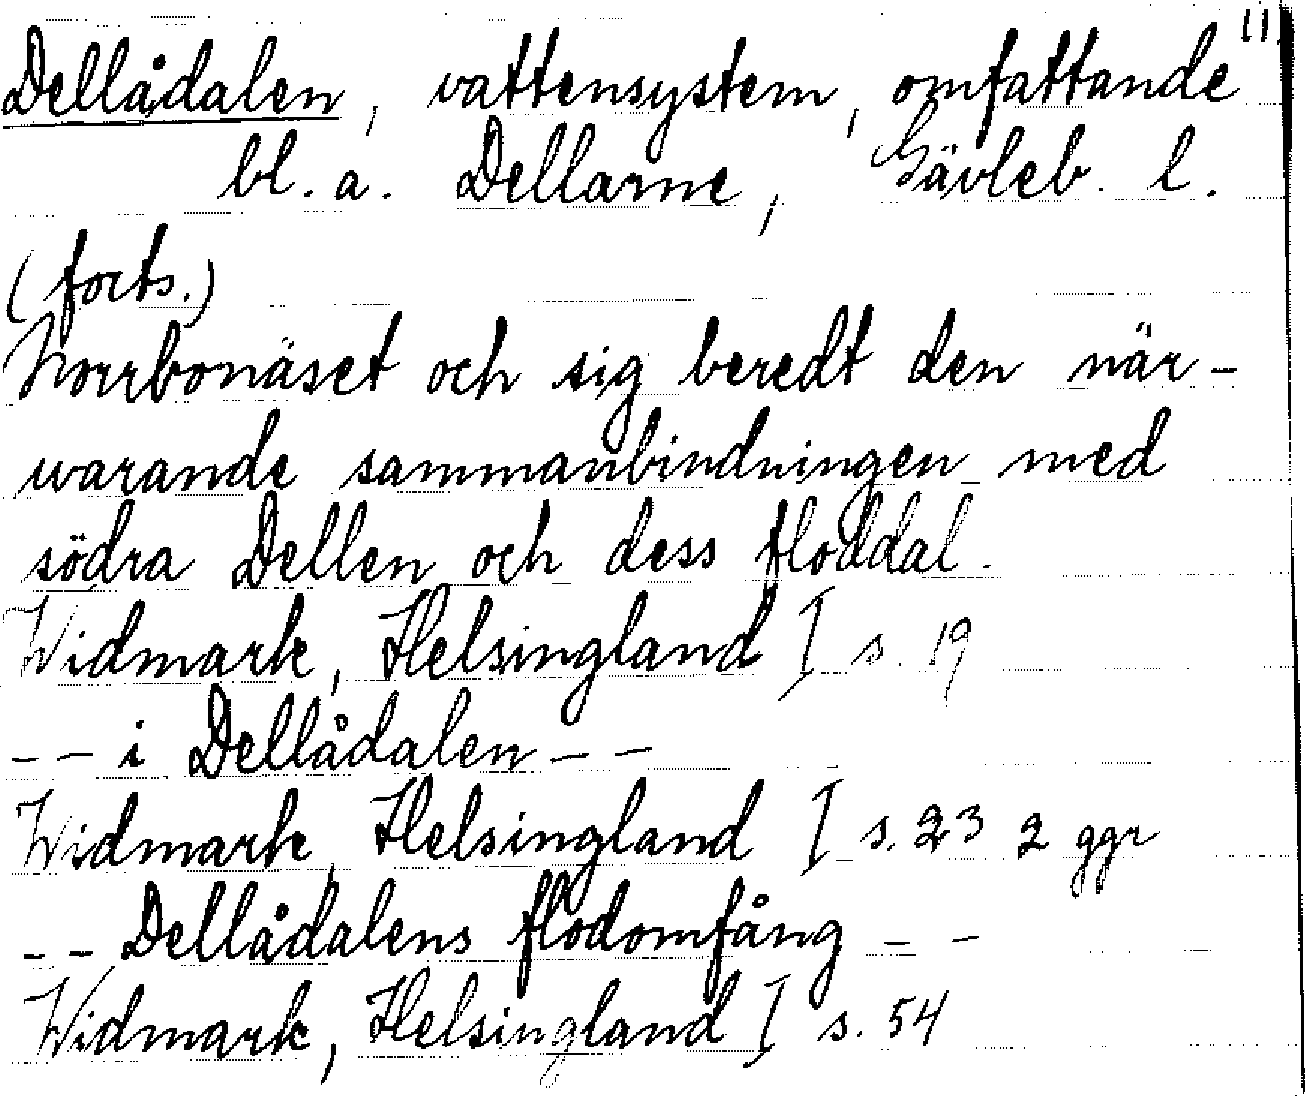 11.
Dellådalen, vattensystem, omfattande
bl. a. Dellarne, Gävleb. l.
(forts.)
Norrbonäset och sig beredt den när-
warande sammanbindningen med
södra Dellen och dess floddal.
Widmark, Helsingland I s. 19
-- i Dellådalen --
Widmark, Helsingland I s. 23 2 ggr
-- Dellådalens flodomfång --
Widmark, Helsingland I s. 54